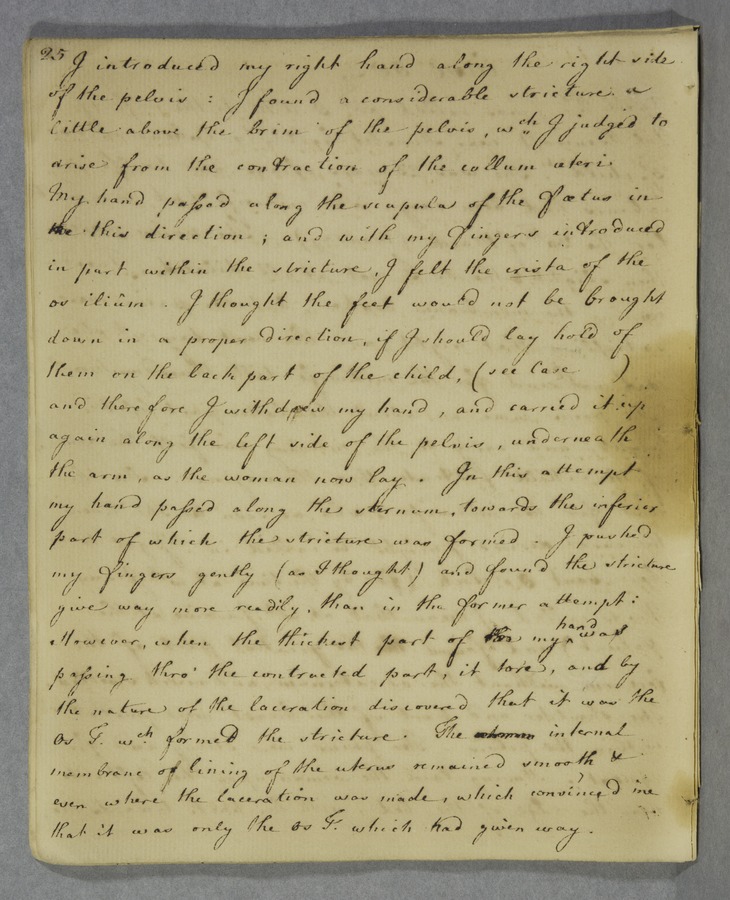 25 I introduced my right hand along the right side
of the pelvis : I found a considerable stricture a
little above the brim of the pelvis, wch I judged to
arise from the contraction of the collum uteri.
My hand passed along the scapula of the foetus in
this direction ; and with my fingers introduced
in part within the stricture, I felt the crista of the
os ilium. I thought the feet would not be brought
down in a proper direction, if I should lay hold of
them on the back part of the child, (see Case )
and therefore I withdrew my hand, and carried it up
again along the left side of the pelvis, underneath
the arm, as the woman now lay. In this attempt
my hand passed along the sternum, towards the inferior
part of which the stricture was formed. I pushed
my fingers gently (as I thought) and found the stricture
give way more readily, than in the former attempt:
However, when the thickest part of my hand was
passing thro' the contracted part, it tore, and by
the nature of the laceration discovered that it was the
Os T. wch formed the stricture. The internal
membrane or lining of the uterus remained smooth &
even where the laceration was made, which convinced me
that it was only the Os T. which had given way.